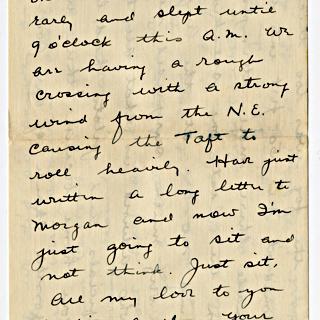 rarely and slept until
9 o'clock this A.M. We
are having a rough
crossing with a strong
wind from the N.E.
causing the Taft to
roll heavily. Have just
written a long letter to
Morgan and now I'm
just going to sit and
not think. Just sit,
All my love to you
Your